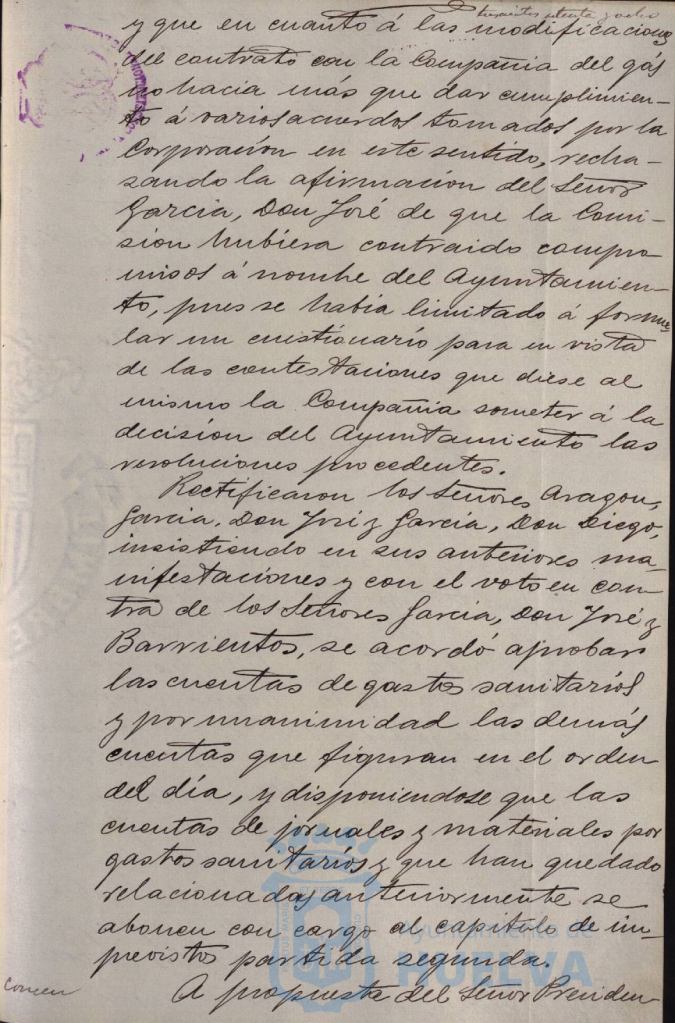 y que en cuanto á las modificaciones
del contrato con la Compañia del gás
no hacia más que dar cumplimien-
to á varios acuerdos tomados por la
Corporación en este sentido, recha-
sando la afirmación del Señor
Garcia, Don José de que la Comi-
sion hubiera contraido compro-
misos á nombre del Ayuntamien-
to, pues se habia limitado á formu-
lar un cuestionario para en vista
de las contestaciones que diese al
mismo la Compañia someter á la
decisión del Ayuntamiento las
resoluciones procedentes.
Rectificaron los Señores Aragon,
Garcia, Don José y Garcia, Don Diego,
insistiendo en sus anteriores ma-
nifestaciones y con el voto en con-
tra de los Señores Garcia, Don José y
Barrientos, se acordó aprobar
las cuentas de gastos sanitarios
y por unanimidad las demás
cuentas que figuran en el orden
del día, y disponiendose que las
cuentas de jornales y materiales por
gastos sanitarios y que han quedado
relacionadas anteriormente se
abonen con cargo al capitulo de im-
previstos partida segunda.
A propuesta del Señor Presiden-
Ayuntamiento de
HUELVA